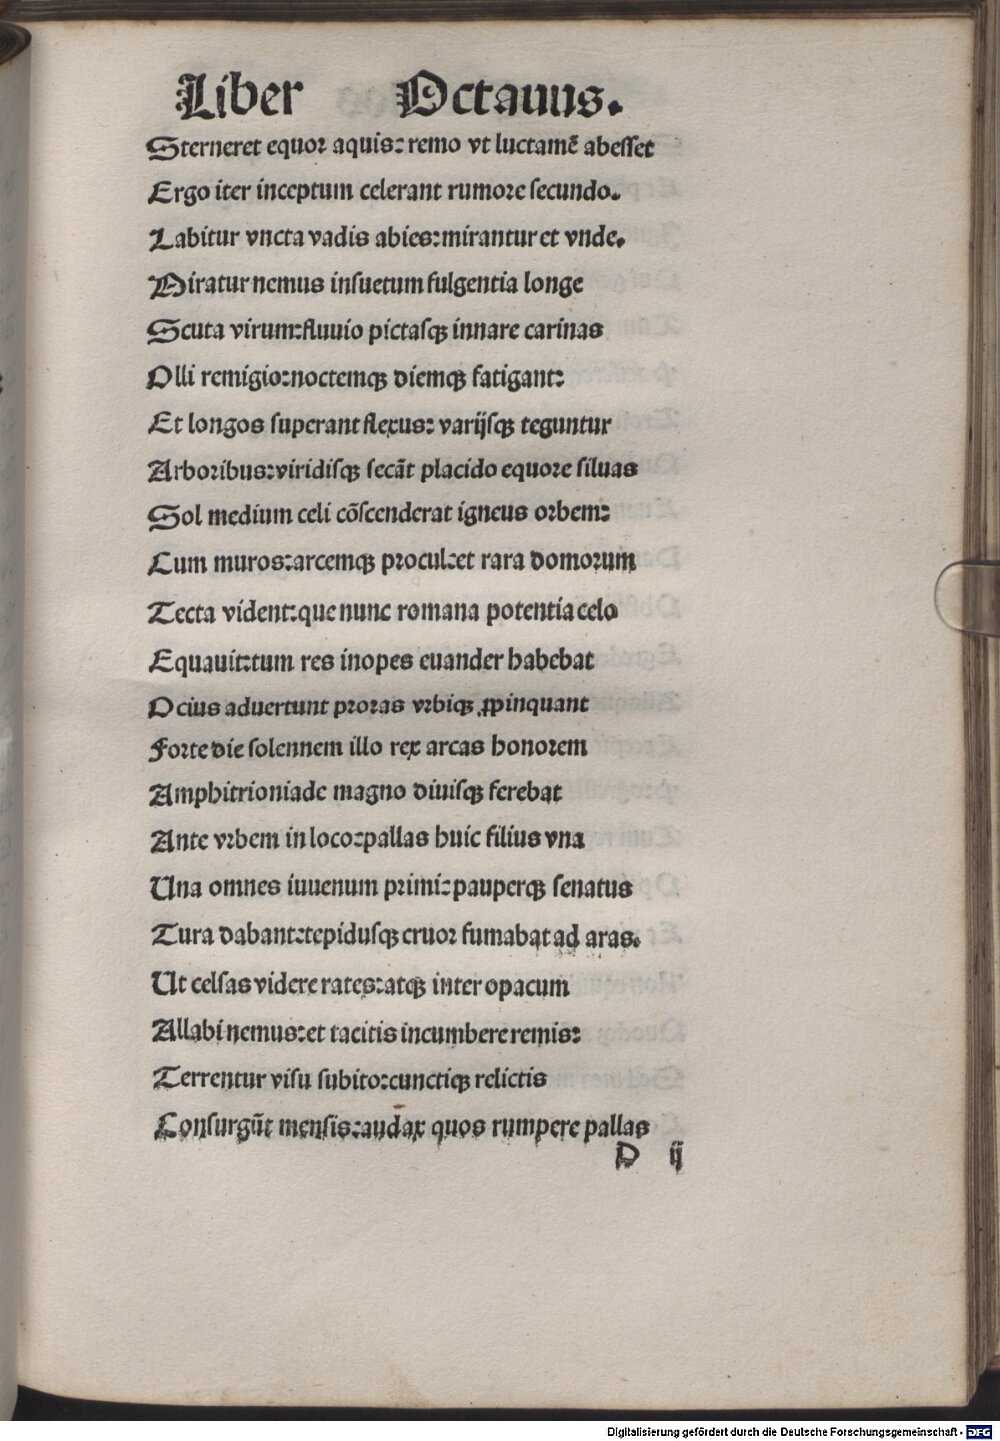 Liber Octauus.
Sterneret equor aquis: remo vt luctamẽ abesset
Ergo iter inceptum celerant rumore secundo.
Labitur vncta vadis abies: mirantur et vnde.
Miratur nemus insuetum fulgentia longe
Scuta virum: fluuio pictasqꝫ innare carinas
Olli remigio: noctemqꝫ diemqꝫ fatigant:
Et longos superant flexus: varijsqꝫ teguntur
Arboribus: viridisqꝫ secãt placido equore siluas
Sol medium celi cõscenderat igneus orbem:
Cum muros: arcemqꝫ procul: et rara domorum
Tecta vident: que nunc romana potentia celo
Equauit: tum res inopes euander habebat
Ocius aduertunt proras vrbiqꝫ ꝓpinquant
Forte die solennem illo rex arcas honorem
Amphitrioniade magno diuisqꝫ ferebat
Ante vrbem in loco: pallas huic filius vna
Una omnes iuuenum primi: pauperqꝫ senatus
Tura dabant: tepidusqꝫ cruor fumabat ad aras.
Ut celsas videre rates: atqꝫ inter opacum
Allabi nemus: et tacitis incumbere remis:
Terrentur visu subito: cunctiqꝫ relictis
Consurgũt mensis: audax quos rumpere pallas
D ij
Digitalisierung gefördert durch die Deutsche Forschungsgemeinschaft - DFG